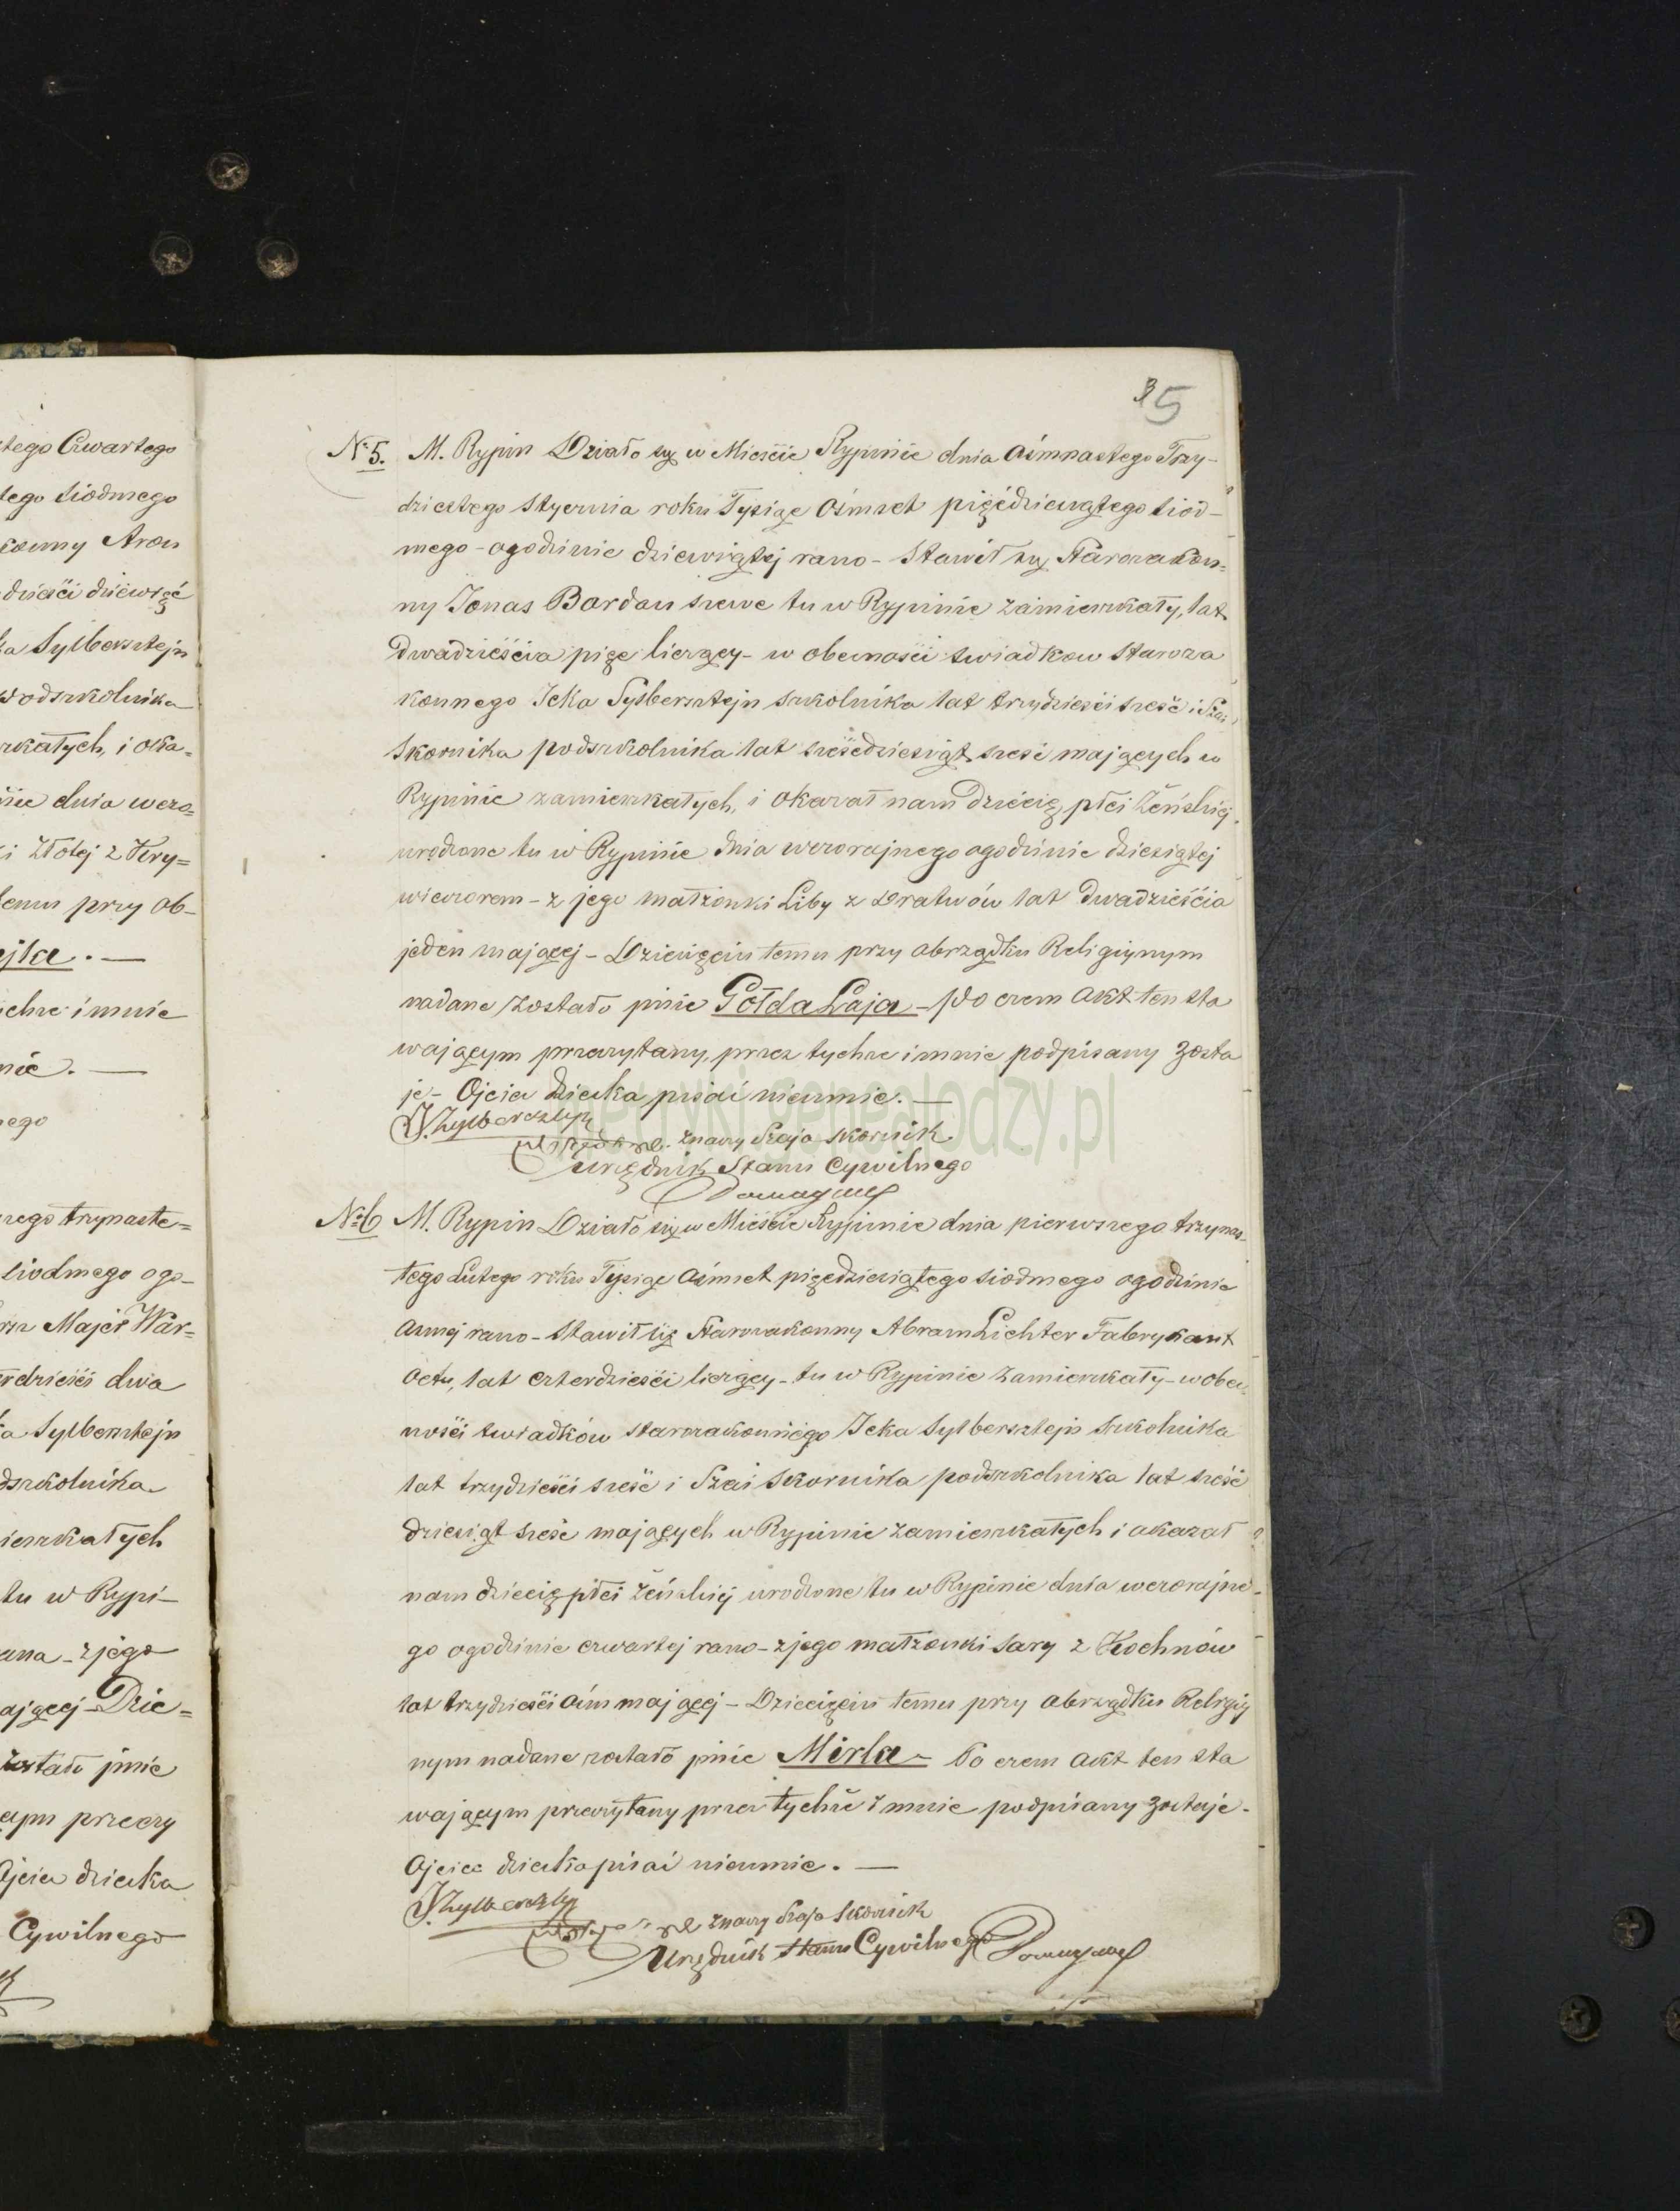 35
tego Czwartego
tego siodmego
konny Aron
dzieści dziewięć
ka Sylbersztejn
podszkolnika
szkałych, i oka=
nie dnia wczo=
i Złotej z Kry=
temu przy ob-
ejka . —
chże i mnie
mie. —
nego
szego trzynaste=
siodmego ogo-
Majer War=
dzieści dwa
ka Sylbersztejn
dszkolnika
ieszkałych
tu w Rypi-
ana - z jego
ającej - Dzie=
zostało jmie
cym przeczy
Ojciec dziecka
Cywilnego
№ 5. M. Rypin Działo się w Mieście Rypinie dnia Ośmnastego Trzy-
dziestego Stycznia roku Tysiąc Ośmset pięćdziesiątego siód-
mego - ogodzinie dziewiątej rano - Stawił się Starozakon=
ny Jonas Bardau szewc tu w Rypinie zamieszkały, lat
Dwadzieścia pięc liczący - w obecności swiadkow Staroza
konnego Icka Sylbersztejn szkolnika lat trzydzieści sześć i Szai
Skornika podszkolnika lat sześćdziesiąt sześć mających w
Rypinie zamieszkałych, i okazał nam Dziécię płci Żeńskiej
urodzone tu w Rypinie dnia wczorajnego ogodzinie dziesiątej
wieczorem - z jego małżonki Liby z Dratwów lat Dwadzieścia
jeden mającej - Dziecięciu temu przy obrządku Religijnym
nadane zostało jmie Gołda Laja - Po czem Akt ten sta
wającym przeczytany, przez tychże i mnie podpisany zosta
je - Ojciec dziecka pisać nieumie. —
J. Zylbersztejn
znaczy Szaja Skornik
Urzędnik Stanu Cywilnego
№ 6 M. Rypin Działo się w Mieście Rypinie dnia pierwszego trzynas-
tego Lutego roku Tysiąc Ośmset pięcdziesiątego siodmego ogodzinie
Osmej rano - Stawił się Starozakonny Abram Lichter Fabrykant
Octu, lat czterdzieści liczący - tu w Rypinie zamieszkały - w obec
ności swiadków starozakonnego Icka Sylbersztejn Szkolnika
lat trzydzieści sześć i Szai Skornika podszkolnika lat sześć
dziesiąt sześć mających w Rypinie zamieszkałych i okazał
nam dziecię płci żeńskiej urodzone tu w Rypinie dnia wczorajne-
go ogodzinie czwartej rano - z jego małżonki Sary z Kochnów
lat trzydzieści ośm mającej - Dziecięciu temu przy obrządku Religij
nym nadane zostało jmie Mirla - Po czem Akt ten sta
wającym przeczytany przez tychże i mnie podpisany zostaje -
Ojciec dziecka pisać nieumie. —
J. Zylbersztejn
znaczy Szaja Skornik
Urzędnik Stanu Cywilnego